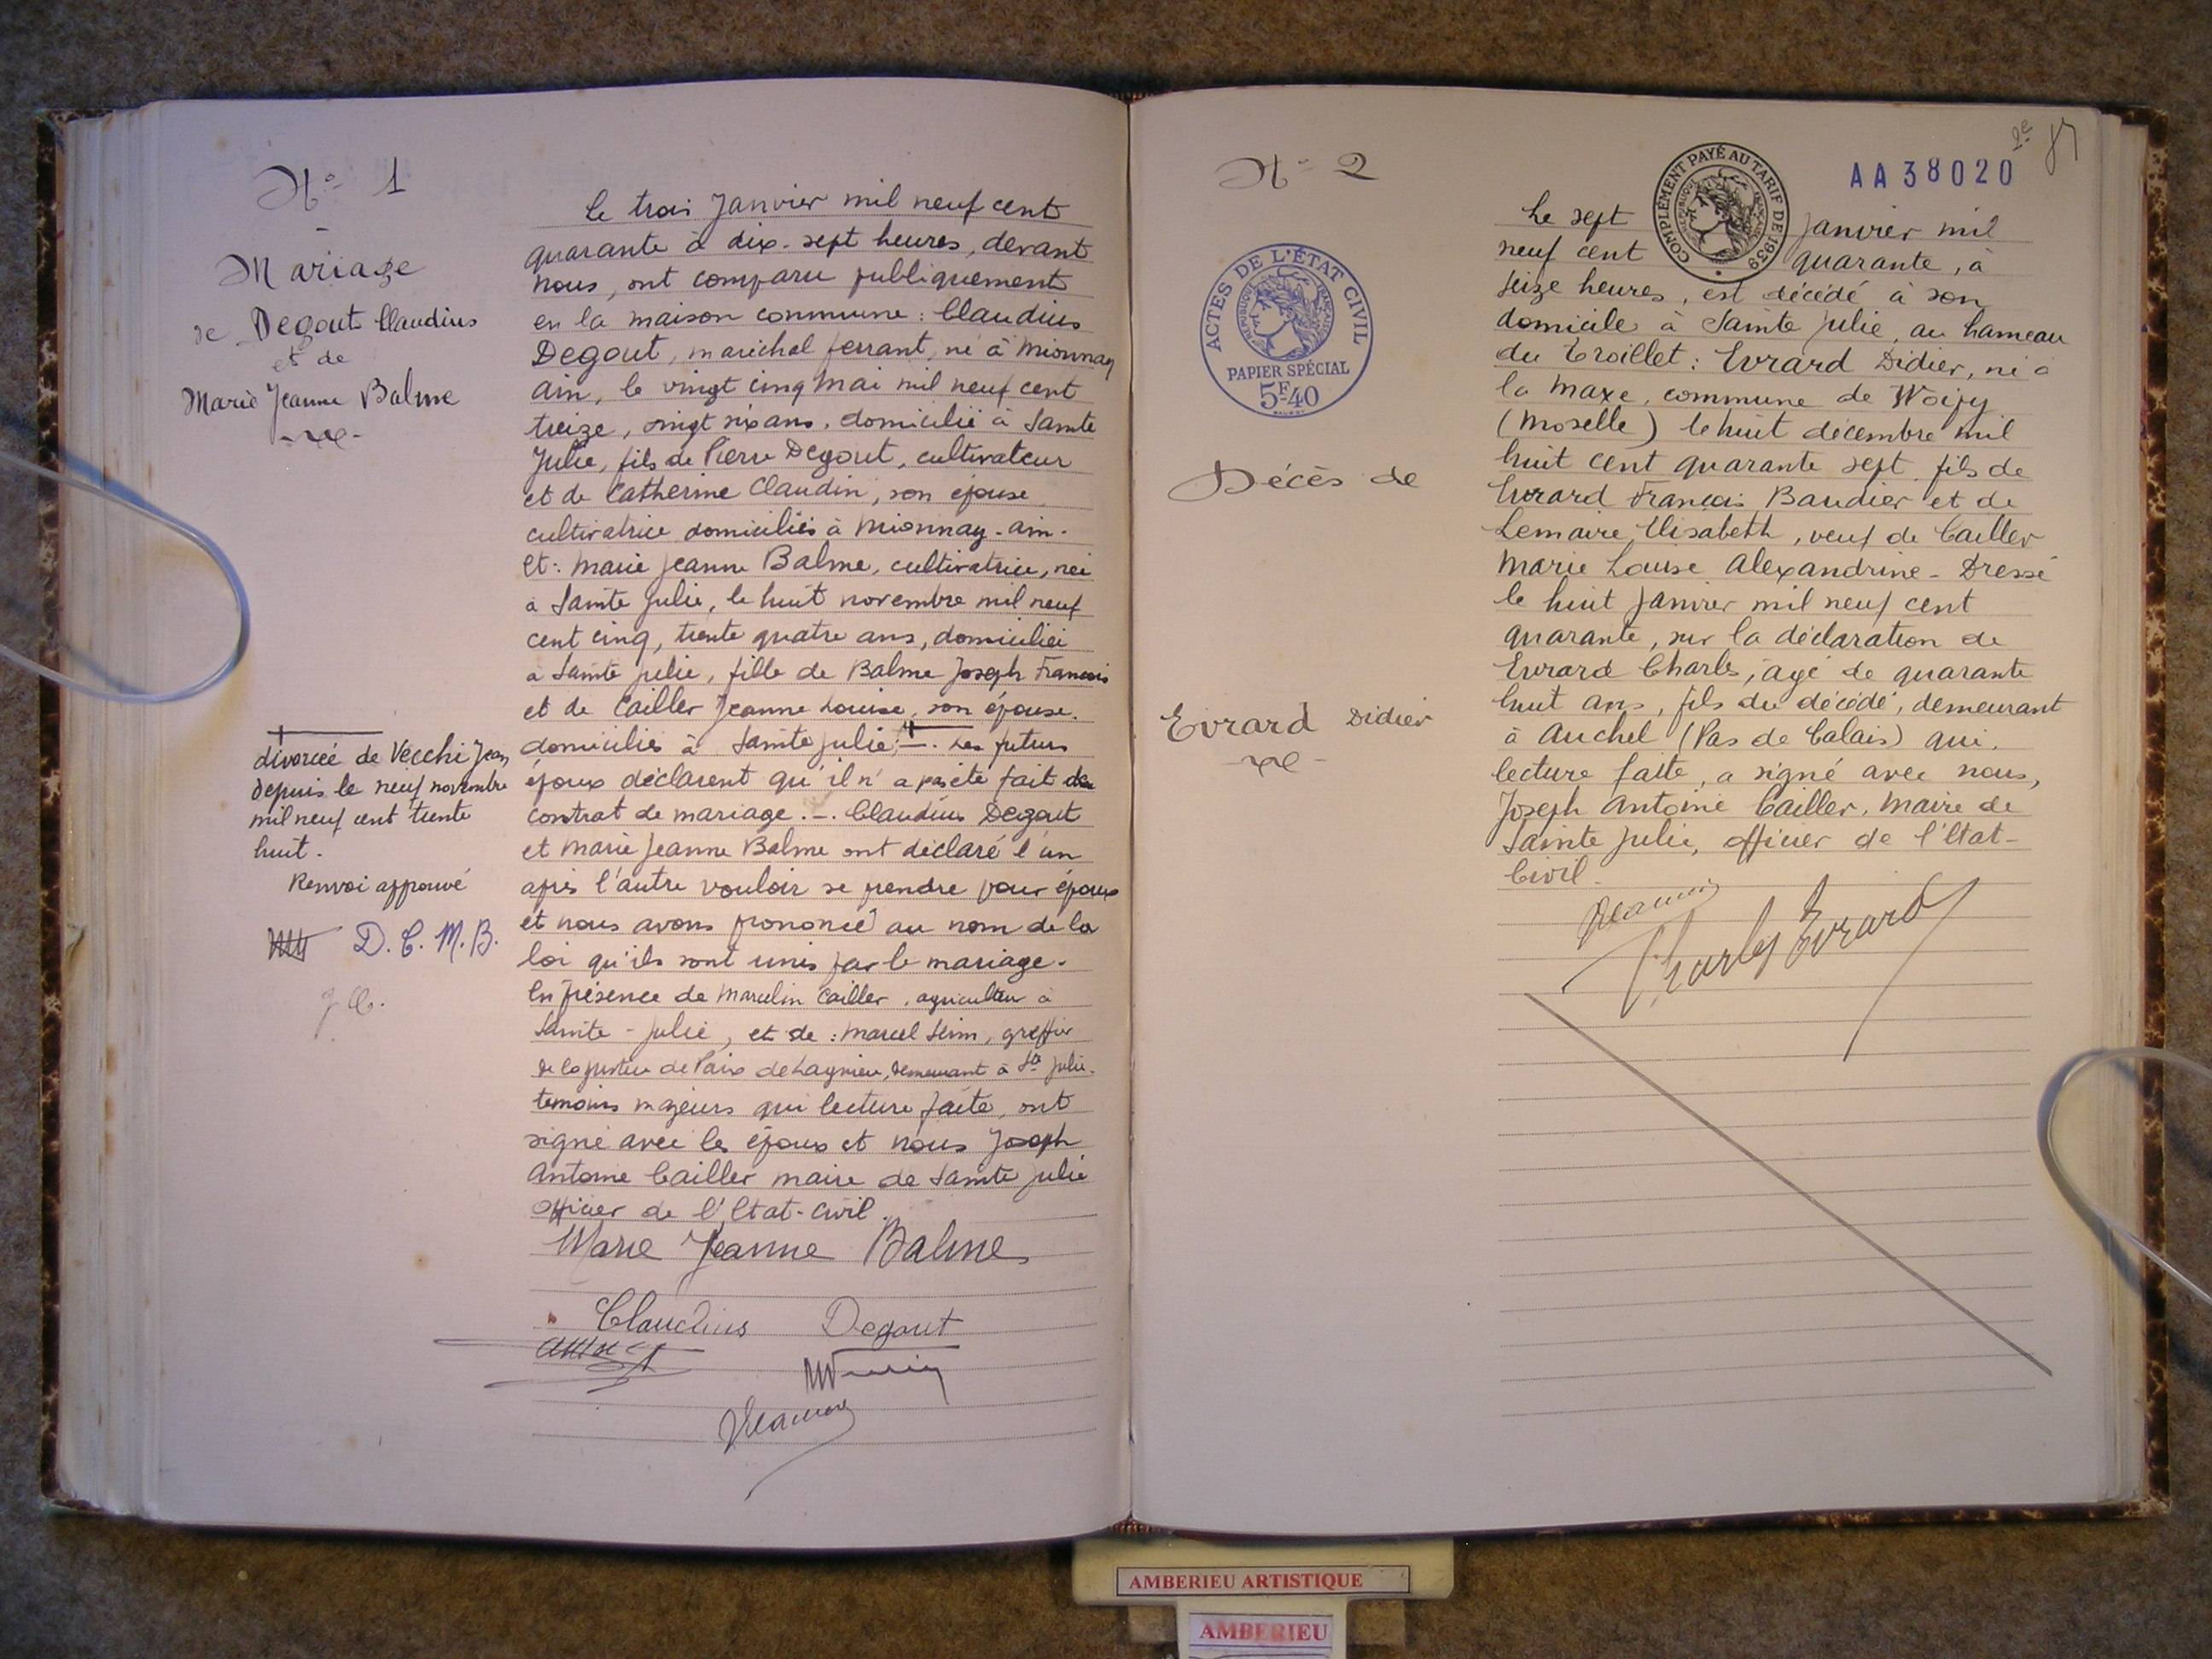 N° 1
Mariage
de Degout Claudius
et de
Marie Jeanne Balme
Le trois Janvier mil neuf cent
quarante à dix-sept heures, devant
nous, ont comparu publiquement
en la maison commune : Claudius
Degout, maréchal ferrant, né à Mionnay
Ain, le vingt cinq Mai mil neuf cent
treize, vingt six ans, domicilié à Sainte
Julie, fils de Pierre Degout, cultivateur
et de Catherine Claudin, son épouse
cultivatrice domiciliés à Mionnay - Ain.
et : Marie Jeanne Balme, cultivatrice, née
à Sainte Julie, le huit novembre mil neuf
cent cinq, trente quatre ans, domiciliée
à Sainte Julie, fille de Balme Joseph François
et de Cailler Jeanne Louise, son épouse.
domiciliés à Sainte Julie, —. Les futurs
époux déclarent qu'il n'a pas été fait de
contrat de mariage. —. Claudius Degout
et Marie Jeanne Balme ont déclaré l'un
après l'autre vouloir se prendre pour époux
et nous avons prononcé au nom de la
loi qu'ils sont unis par le mariage.
En présence de Marcelin Cailler, agriculteur à
Sainte - Julie, et de : Marcel , greffier
de la justice de Paix de Lagnieu, demeurant à Ste Julie.
témoins majeurs qui lecture faite, ont
signé avec les époux et nous Joseph
Antoine Cailler maire de Sainte Julie
officier de l'Etat-civil.
divorcée de Vecchi Jean
depuis le neuf novembre
mil neuf cent trente
huit.
Renvoi approuvé
D. C. M. B.
Marie Jeanne Balme
Claudius Degout
N° 2
ACTES DE L'ÉTAT CIVIL
RÉPUBLIQUE FRANÇAISE
PAPIER SPÉCIAL
5F40
Décès de
Evrard Didier
COMPLÉMENT PAYÉ AU TARIF DE 1939
RÉPUBLIQUE FRANÇAISE
AA38020
Le sept Janvier mil
neuf cent quarante, à
seize heures, est décédé à son
domicile à Sainte Julie, au hameau
du Troillet : Evrard Didier, né à
la Maxe, commune de Woippy
(Moselle) le huit décembre mil
huit cent quarante sept, fils de
Evrard François Baudier et de
Lemaire Elisabeth, veuf de Cailler
Marie Louise Alexandrine - Dressé
le huit Janvier mil neuf cent
quarante, sur la déclaration de
Evrard Charles, âgé de quarante
huit ans, fils du décédé, demeurant
à Auchel (Pas de Calais) qui,
lecture faite, a signé avec nous,
Joseph Antoine Cailler, Maire de
Sainte Julie, officier de l'Etat-
Civil.
Charles Evrard
AMBERIEU ARTISTIQUE
AMBERIEU